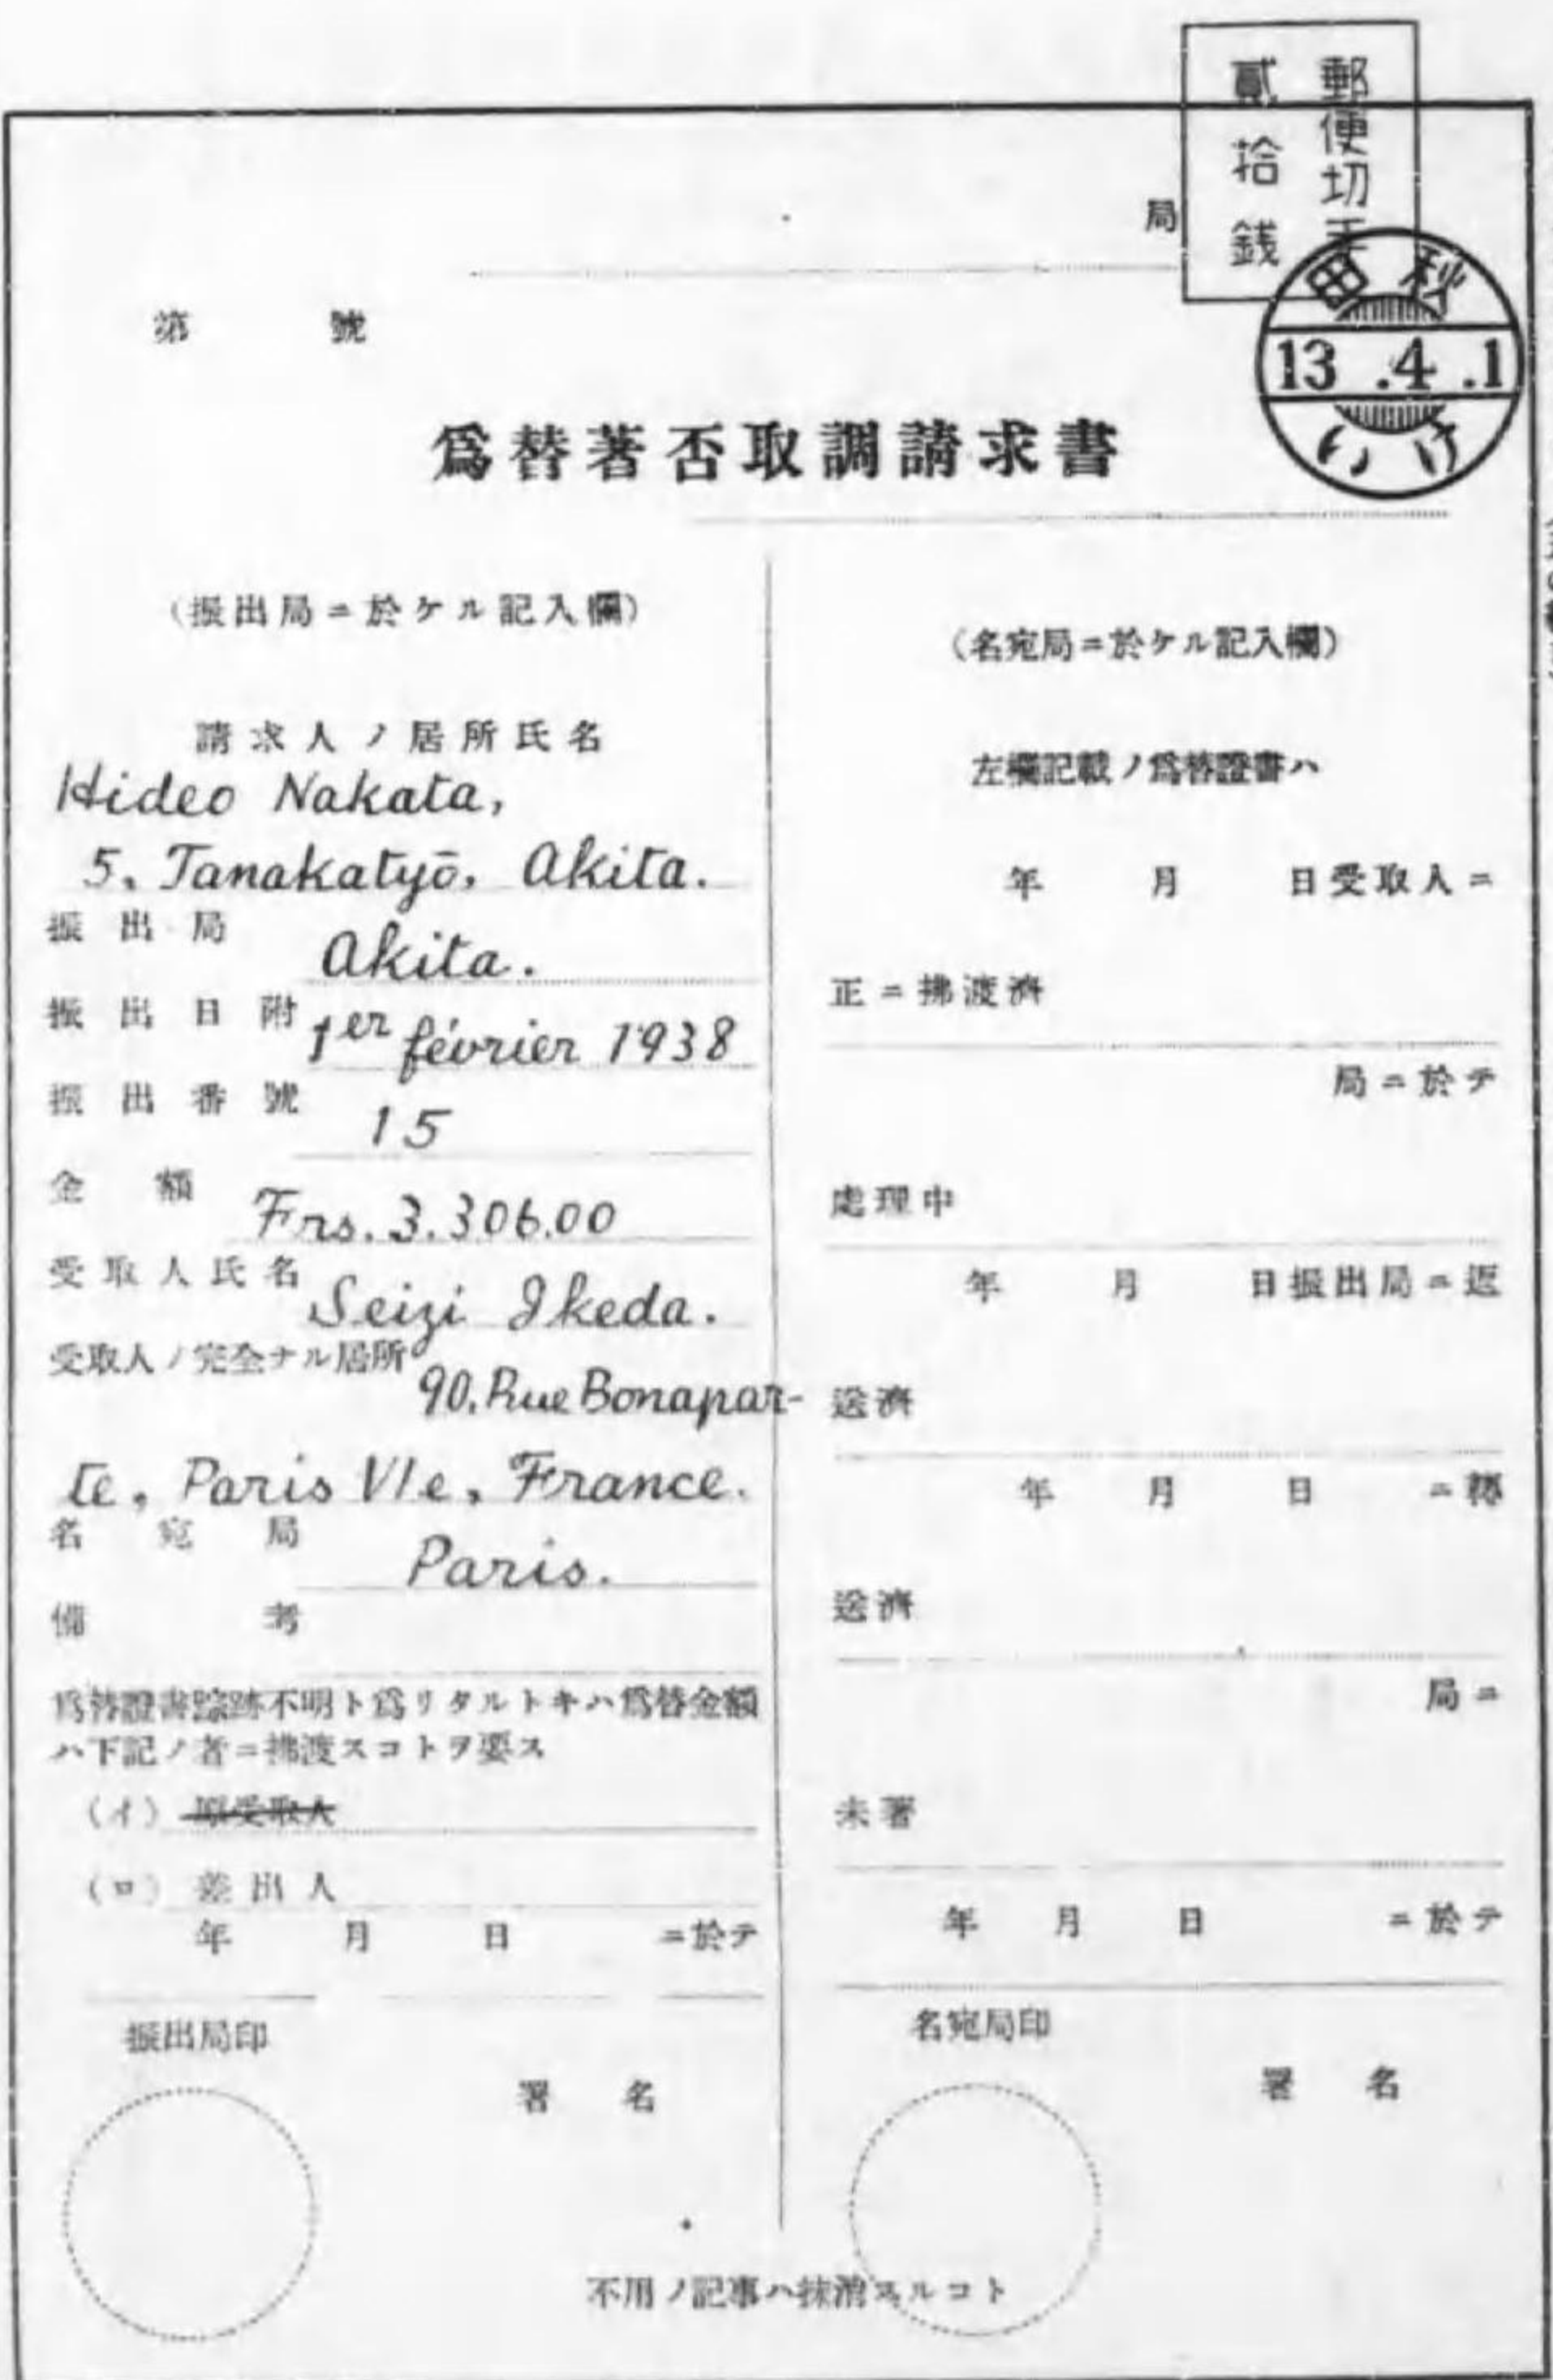 郵便切手
貳拾錢
局
秋田
13.4.1
第 號
爲替著否取調請求書
(振出局ニ於ケル記入欄)
請求人ノ居所氏名
Hideo Nakata,
5, Tanakatyō, Akita.
振出局 Akita.
振出日附 1er février 1938
振出番號 15
金額 Frs. 3.306.00
受取人氏名 Seizi Ikeda.
受取人ノ完全ナル居所 90, Rue Bonapar-
te, Paris VIe, France.
名宛局 Paris.
備考
爲替證書踪跡不明ト爲リタルトキハ爲替金額
ハ下記ノ者ニ拂渡スコトヲ要ス
(イ) 原受取人
(ロ) 差出人
年 月 日 ニ於テ
振出局印
署名
(名宛局ニ於ケル記入欄)
左欄記載ノ爲替證書ハ
年 月 日受取人ニ
正ニ拂渡濟
局ニ於テ
處理中
年 月 日振出局ニ返
送濟
年 月 日 ニ轉
送濟
局ニ
未著
年 月 日 ニ於テ
名宛局印
署名
不用ノ記事ハ抹消スルコト